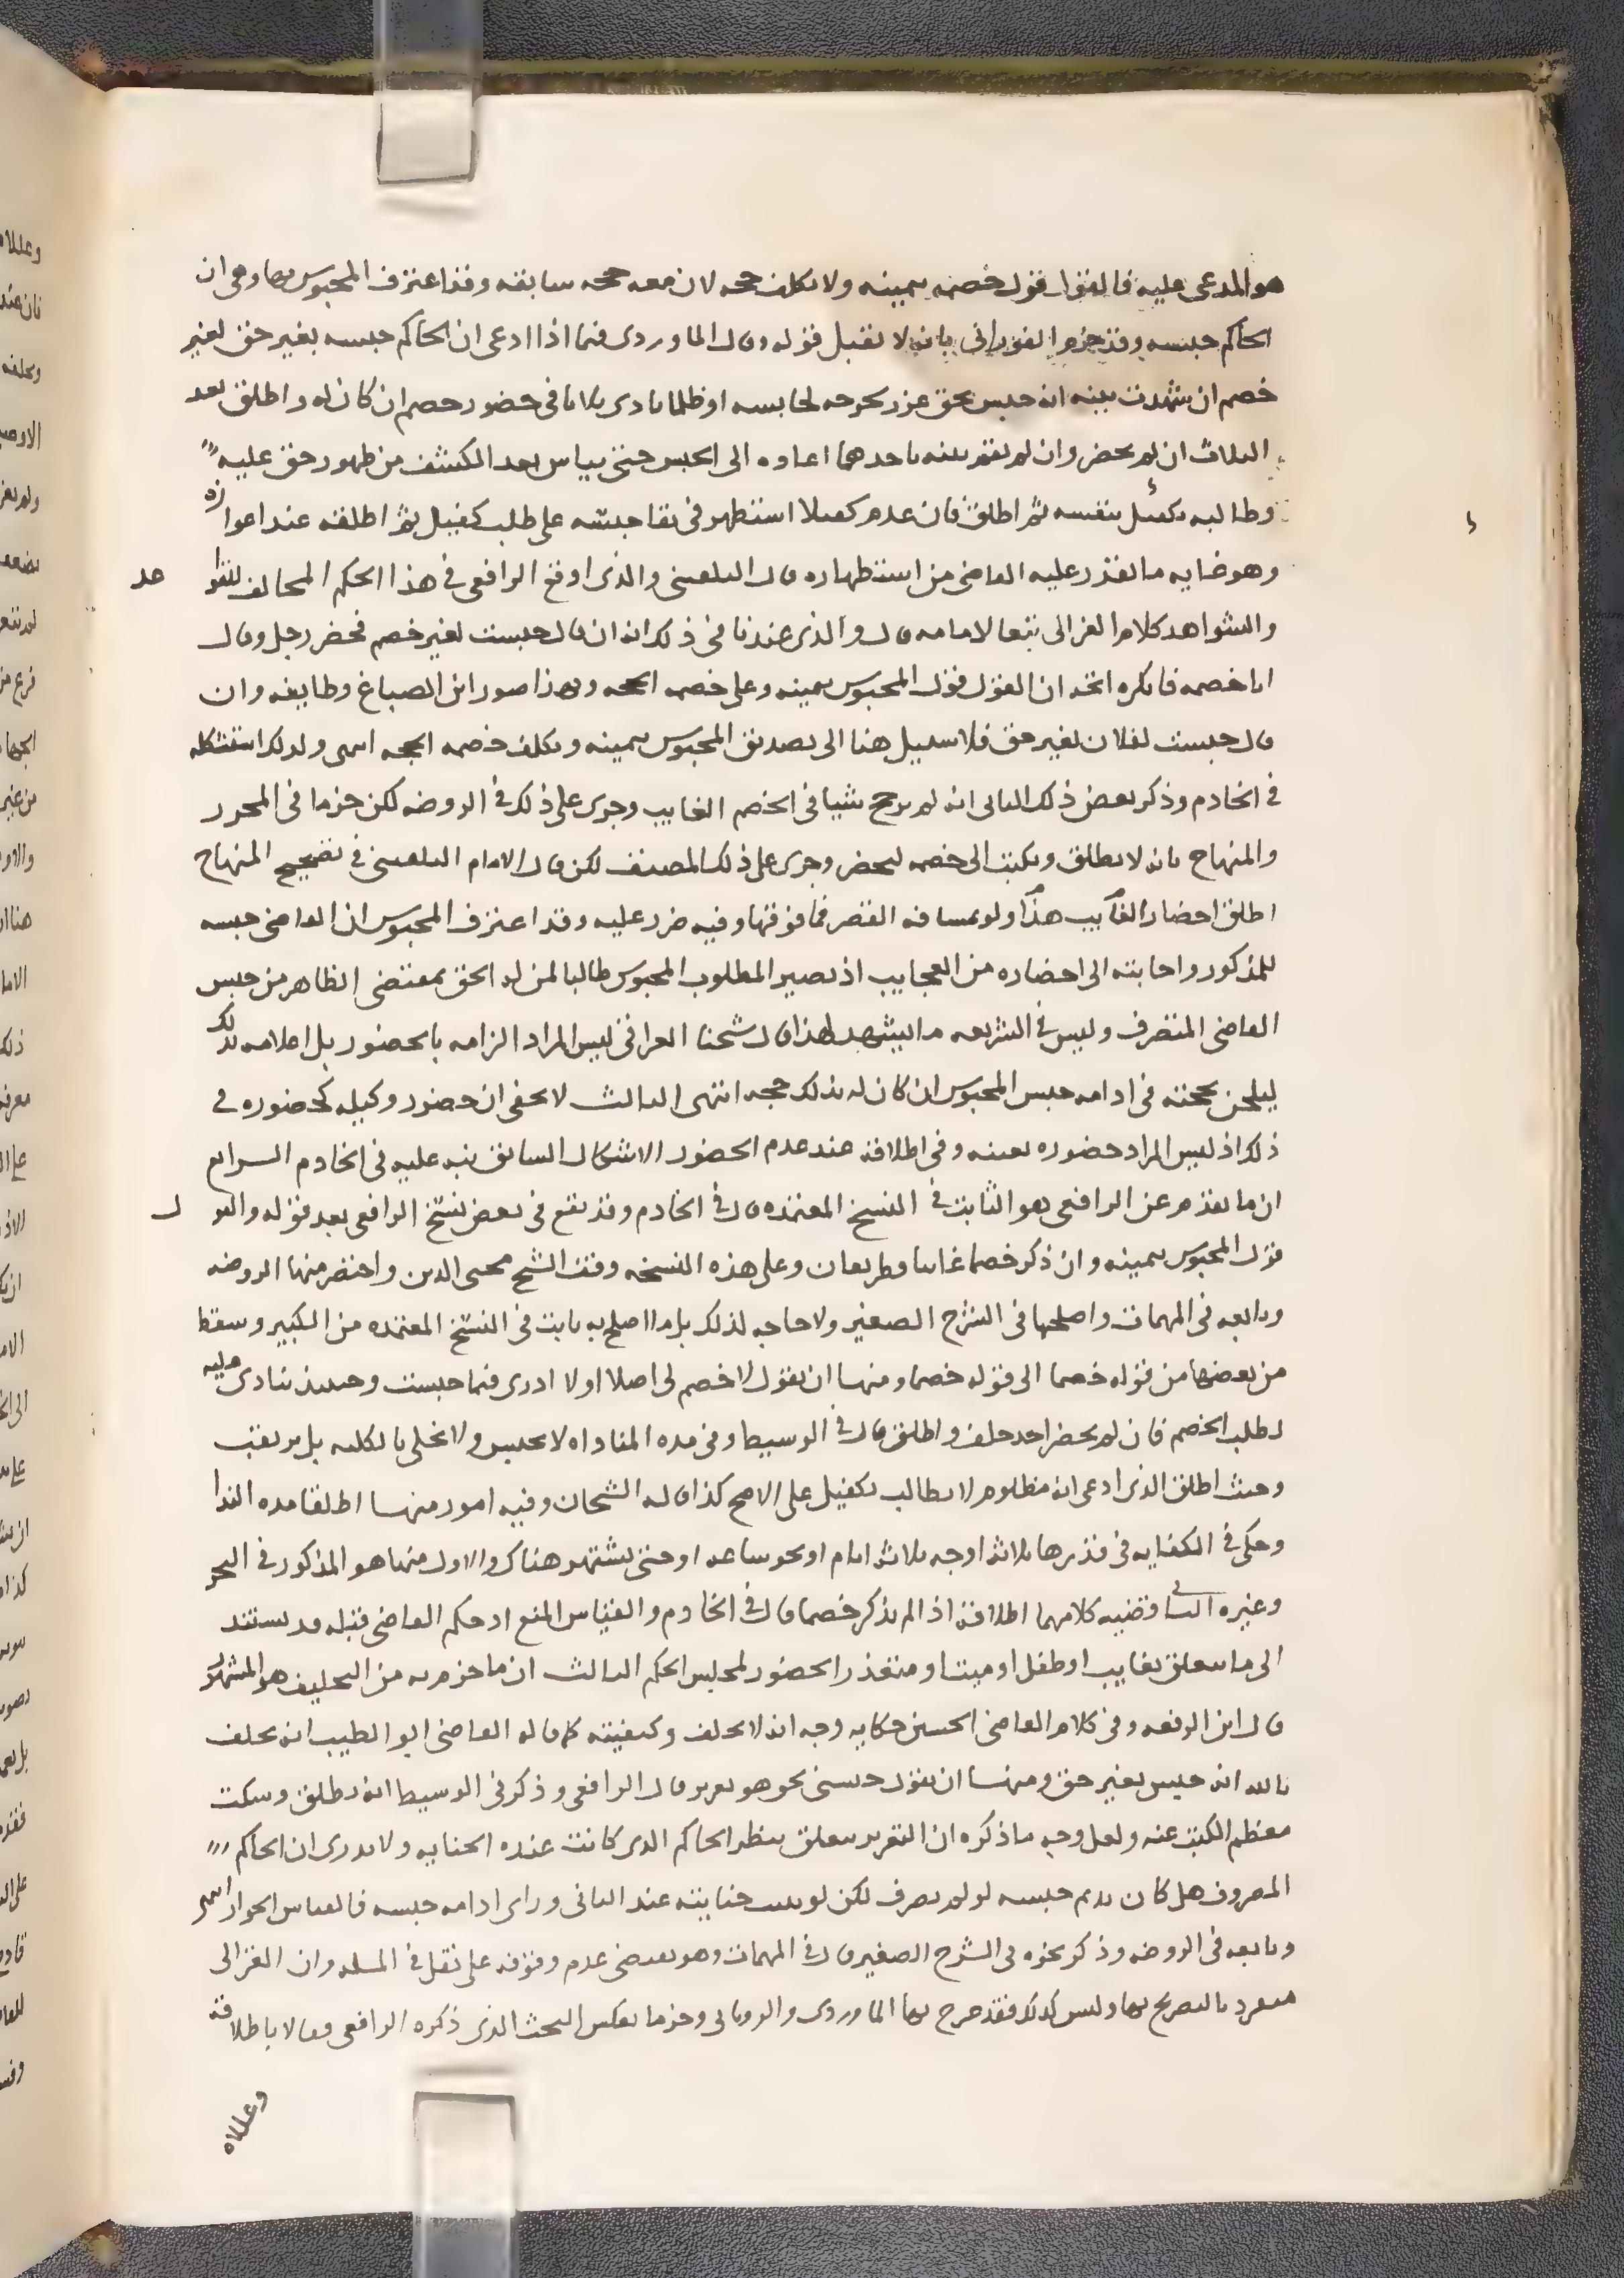 هو المدعى عليه فالقول قول خصمه بيمينه ولا يكلف حجه لان معه حجه سابقه وقد اعترف المحبوس بها وهى ان
الحاكم حبسه وقد جزم الفورانى بانه لا يقبل قوله وقال الماوردى فيما اذا ادعى ان الحاكم حبسه بغير حق لغير
خصم ان شهدت بينه انه حبس بحق عزر بجرحه لحابسه او ظلما نادى ثلاثا فى حضور خصم ان كان له واطلق بعد
الثلاث ان لم يحضر وان لم تقم بينه باحدهما اعاده الى الحبس حتى يياس بعد الكشف من ظهور حق عليه
وطالبه بكفيل بنفسه ثم اطلق فان عدم كفيلا استظهر فى بقا حبسه على طلب كفيل ثم اطلقه عند اعوازه
وهو غايه ما يقدر عليه القاضى من استظهاره قال البلقينى والذى اوقع الرافعى فى هذا الحكم المخالف للقوا عد
والشواهد كلام الغزالى تبعا لامامه قال والذى عندنا فى ذلك انه ان قال حبست لغير خصم فحضر رجل وقال
انا خصمه فانكره اتجه ان القول قول المحبوس بيمينه وعلى خصمه الحجه وبهذا صور ابن الصباغ وطايفه وان
قال حبست لفلان بغير حق فلا سبيل هنا الى تصديق المحبوس بيمينه وتكلف خصمه الحجه انتهى ولذلك استشكله
فى الخادم وذكر بعض ذلك الثانى انه لم يرجح شيا فى الخصم الغايب وجرى على ذلك فى الروضه لكن جزما فى المحرر
والمنهاج بانه لا يطلق ويكتب الى خصمه ليحضر وجرى على ذلك المصنف لكن قال الامام البلقينى فى تصحيح المنهاج
اطلق احضار الغايب هذا ولو بمسافه القصر فما فوقها وفيه ضرر عليه وقد اعترف المحبوس ان القاضى حبسه
للمذكور واجابته الى احضاره من العجايب اذ يصير المطلوب المحبوس طالبا لمن له الحق بمقتضى الظاهر من حبس
القاضى المتصرف وليس فى الشريعه ما يشهد لهذا قال شيخنا العراقى ليس المراد الزامه بالحضور بل اعلامه بذلك
ليلحن بحجته فى ادامه حبس المحبوس ان كان له بذلك حجه انتهى الثالث لا يخفى ان حضور وكيله كحضوره فى
ذلك اذ ليس المراد حضوره بعينه وفى اطلاقه عند عدم الحضور الاشكال السابق نبه عليه فى الخادم الرابع
ان ما تقدم عن الرافعى هو الثابت فى النسخ المعتمده قال فى الخادم وقد يقع فى بعض نسخ الرافعى بعد قوله والقو ل
قول المحبوس بيمينه وان ذكر خصما غايبا فطريقان وعلى هذه النسخه وقف الشيخ محيى الدين واختصر منها الروضه
وتابعه فى المهمات واصلحها فى الشرح الصغير ولا حاجه لذلك بل ما اصلح به ثابت فى النسخ المعتمده من الكبير وسقط
من بعضها من قوله خصما الى قوله خصما ومنها ان يقول لا خصم لى اصلا او لا ادرى فيما حبست وحينيذ ينادى عليه
لطلب الخصم فان لم يحضر احد حلف واطلق قال فى الوسيط وفى مده المناداه لا يحبس ولا يخلى بالكليه بل يرتقب
وحيث اطلق الذى ادعى انه مظلوم لا يطالب بكفيل على الاصح كذا قاله الشيخان وفيه امور منها اطلقا مده الندا
وحكى فى الكفايه فى قدرها ثلاثه اوجه ثلاثه ايام او نحو ساعه او حتى يشتهر هناك والاول منها هو المذكور فى البحر
وغيره الثانى قضيه كلامهما اطلاقه اذا لم يذكر خصما قال فى الخادم والقياس المنع اذ حكم القاضى قبله قد يستند
الى ما يتعلق بغايب او طفل او ميت او متعذر الحضور لمجلس الحكم الثالث ان ما جزم به من التحليف هو المشهور
قال ابن الرفعه وفى كلام القاضى الحسين حكايه وجه انه لا يحلف وكيفيته كما قاله القاضى ابو الطيب انه يحلف
بالله انه حبس بغير حق ومنها ان يقول حبسنى نحو هو تعزير قال الرافعى وذكر فى الوسيط انه يطلق وسكت
معظم الكتب عنه ولعل وجه ما ذكره ان التعزير يتعلق بنظر الحاكم الذى كانت عنده الجنايه ولا يدرى ان الحاكم
المصروف هل كان يديم حبسه لو لم يصرف لكن لو ثبتت جنايته عند الثانى وراى ادامه حبسه فالقياس الجواز انتهى
وتابعه فى الروضه وذكر نحوه فى الشرح الصغير قال فى المهمات وهو يقتضى عدم وقوفه على نقل فى المسله وان الغزالى
متفرد بالتصريح بها وليس كذلك فقد صرح بها الماوردى والرويانى وجزما بعكس البحث الذى ذكره الرافعى وقالا باطلاقه
وعللاه